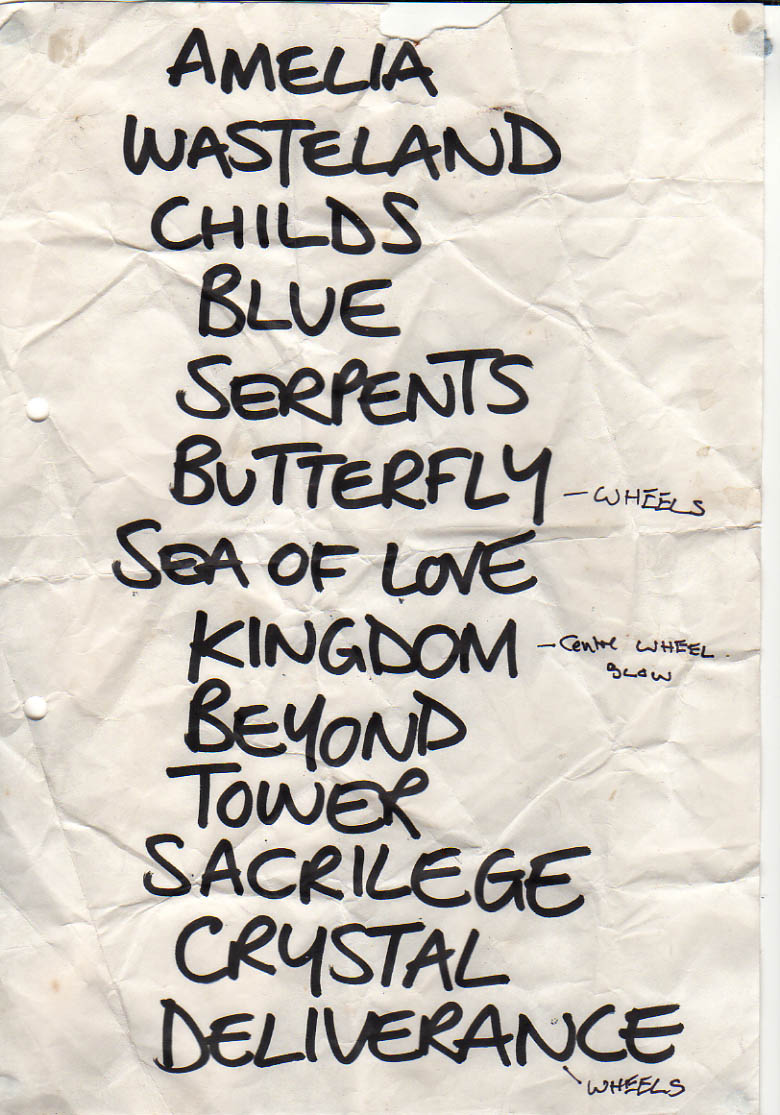 AMELIA
WASTELAND
CHILDS
BLUE
SERPENTS
BUTTERFLY – WHEELS
SEA OF LOVE
KINGDOM – Centre WHEEL
SLOW
BEYOND
TOWER
SACRILEGE
CRYSTAL
DELIVERANCE
WHEELS